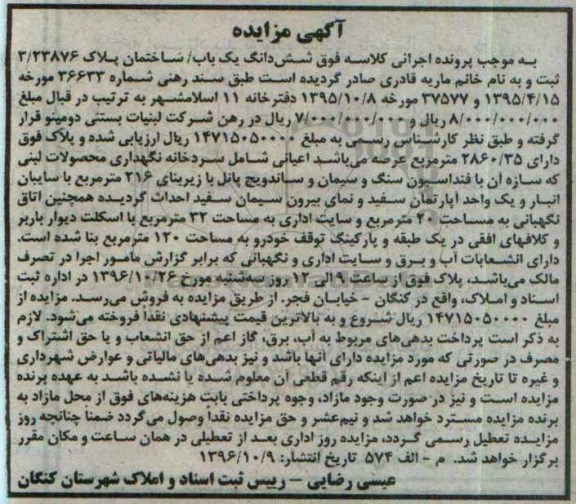 آگهی مزایده
به موجب پرونده اجرائی کلاسه فوق شش‌دانگ یک باب/ ساختمان پلاک ۳/۲۳۸۷۶
ثبت و به نام خانم ماریه قادری صادر گردیده است طبق سند رهنی شماره ۳۶۶۳۳ مورخه
۱۳۹۵/۴/۱۵ و ۳۷۵۷۷ مورخه ۱۳۹۵/۱۰/۸ دفترخانه ۱۱ اسلامشهر به ترتیب در قبال مبلغ
۸/۰۰۰/۰۰۰/۰۰۰ ریال و ۷/۰۰۰/۰۰۰/۰۰۰ ریال در رهن شرکت لبنیات بستنی دومینو قرار
گرفته و طبق نظر کارشناس رسمی به مبلغ ۱۴۷۱۵۰۵۰۰۰۰ ریال ارزیابی شده و پلاک فوق
دارای ۲۸۶۰/۳۵ مترمربع عرصه می‌باشد اعیانی شامل سردخانه نگهداری محصولات لبنی
که سازه آن با فنداسیون سنگ و سیمان و ساندویچ پانل با زیربنای ۲۱۶ مترمربع با سایبان
انبار و یک واحد آپارتمان سفید و نمای بیرون سیمان سفید احداث گردیده همچنین اتاق
نگهبانی به مساحت ۲۰ مترمربع و سایت اداری به مساحت ۳۲ مترمربع با اسکلت دیوار باربر
و کلافهای افقی در یک طبقه و پارکینگ توقف خودرو به مساحت ۱۲۰ مترمربع بنا شده است.
دارای انشعابات آب و برق و سایت اداری و نگهبانی که برابر گزارش مامور اجرا در تصرف
مالک می‌باشد، پلاک فوق از ساعت ۹ الی ۱۲ روز سه‌شنبه مورخ ۱۳۹۶/۱۰/۲۶ در اداره ثبت
اسناد و املاک، واقع در کنگان – خیابان فجر، از طریق مزایده به فروش می‌رسد. مزایده از
مبلغ ۱۴۷۱۵۰۵۰۰۰۰ ریال شروع و به بالاترین قیمت پیشنهادی نقدا فروخته می‌شود. لازم
به ذکر است پرداخت بدهی‌های مربوط به آب، برق، گاز اعم از حق انشعاب و یا حق اشتراک و
مصرف در صورتی که مورد مزایده دارای آنها باشد و نیز بدهی‌های مالیاتی و عوارض شهرداری
و غیره تا تاریخ مزایده اعم از اینکه رقم قطعی آن معلوم شده یا نشده باشد به عهده برنده
مزایده است و نیز در صورت وجود مازاد، وجوه پرداختی بابت هزینه‌های فوق از محل مازاد به
برنده مزایده مسترد خواهد شد و نیم‌عشر و حق مزایده نقدا وصول می‌گردد ضمنا چنانچه روز
مزایده تعطیل رسمی گردد، مزایده روز اداری بعد از تعطیلی در همان ساعت و مکان مقرر
برگزار خواهد شد. م – الف ۵۷۴ تاریخ انتشار: ۱۳۹۶/۱۰/۹
عیسی رضایی – رییس ثبت اسناد و املاک شهرستان کنگان